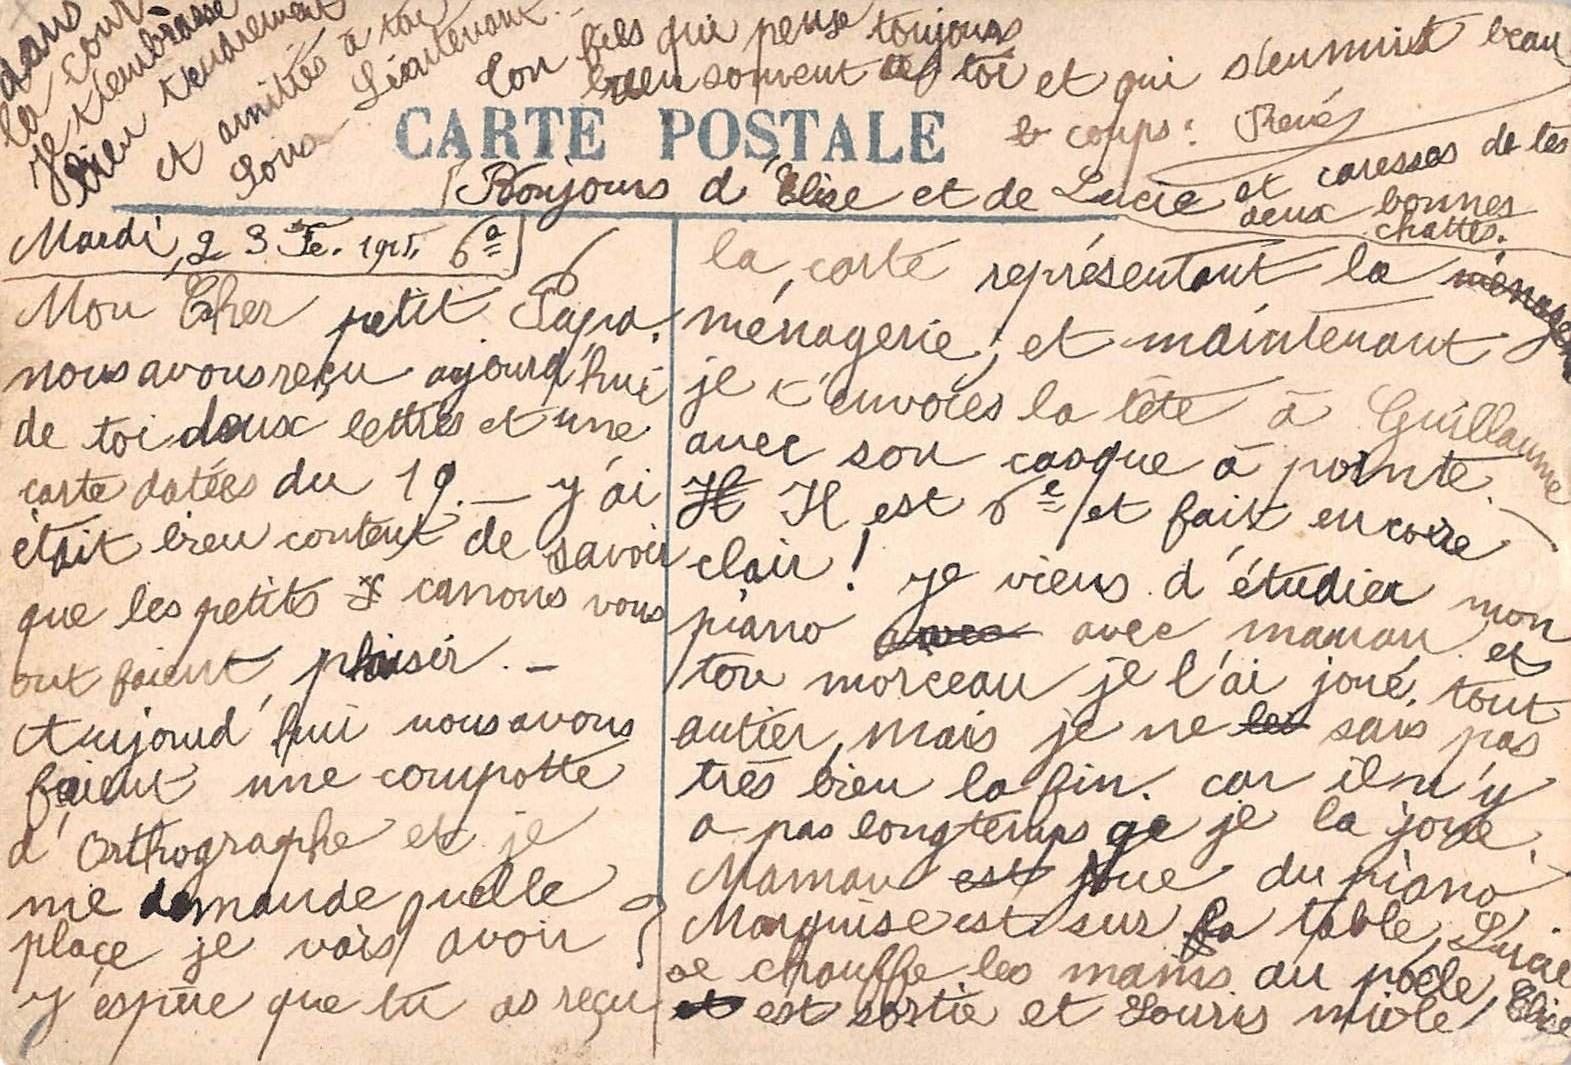 CARTE POSTALE
Mardi, 23 Fe. 1915, 6ʰ
Mon Cher petit Papa.
nous avons reçu aujourd'hui
de toi deux lettres et une
carte datées du 19. — y'ai
était bien content de savoir
que les petits canons vous
ont faient plaisir. —
Aujourd'hui nous avons
faient une compotte
d'Orthographe et je
me demande quelle
plaçe je vais avoir ?
y'espère que tu as reçu
la carte représentant la ménagerie
ménagerie, et maintenant
je t'envoies la tête à Guillaume
avec son casque à pointe.
Il Il est 6ʰ et fait encore
clair ! je viens d'étudier mon
piano avec avec maman et
ton morceau je l'ai joué tout
antier, mais je ne les sais pas
très bien la fin. car il n'y
a pas longtemps qe je la joue.
Maman est joue du piano
Marquise est sur la table, Lucie
se chauffe les mains au poêle, Elise
et est sortie et Souris miole
dans
la cour
Je t'embrasse
bien tendrement
et amitiés à ton
Sous-Lieutenant. —
Ton fils qui pense toujours
bien souvent à toi et qui s'ennuit beau
coups : René
Bonjours d'Elise et de Lucie et caresses de tes
deux bonnes
chattes.